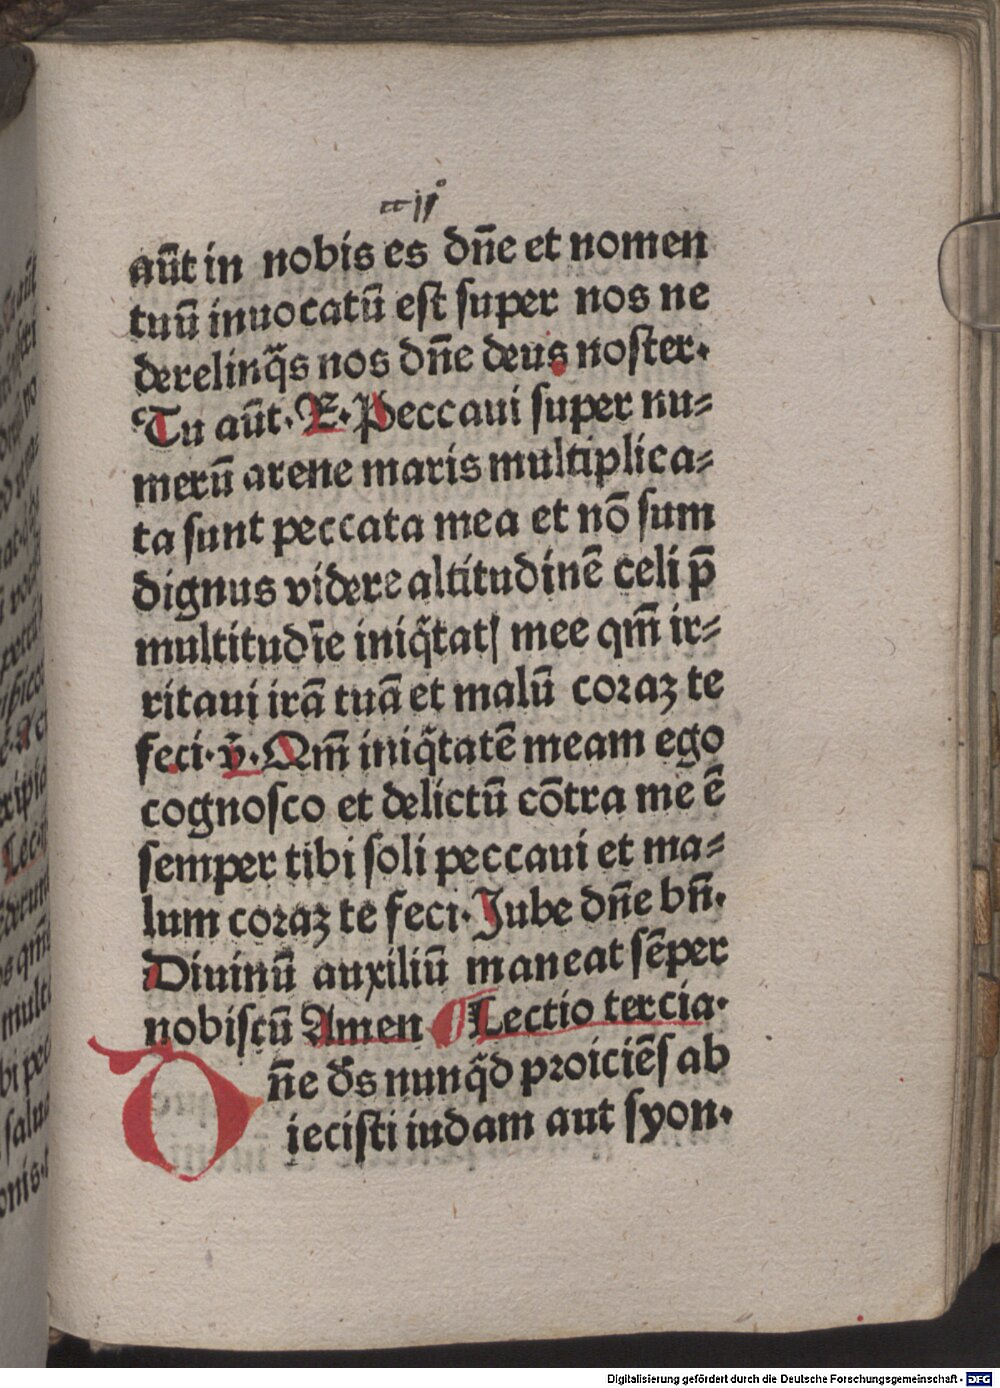 aūt in nobis es dn̄e et nomen
tuū inuocatū est super nos ne
derelinq̄s nos dn̄e deus noster.
Tu aūt. R. Peccaui super nu=
merū arene maris multiplica=
ta sunt peccata mea et nō sum
dignus videre altitudinē celi p̄
multitudīe iniq̄tatꝭ mee qm̄ ir=
ritaui irā tuā et malū coraꝫ te
feci. v̄. Qm̄ iniq̄tatē meam ego
cognosco et delictū cōtra me ē
semper tibi soli peccaui et ma=
lum coraꝫ te feci. Jube dn̄e bn̄.
Diuinū auxiliū maneat sēper
nobiscū Amen Lectio tercia.
Dn̄e ds̄ nunq̄d proiciēs ab
iecisti iudam aut syon.
Digitalisierung gefördert durch die Deutsche Forschungsgemeinschaft - DFG